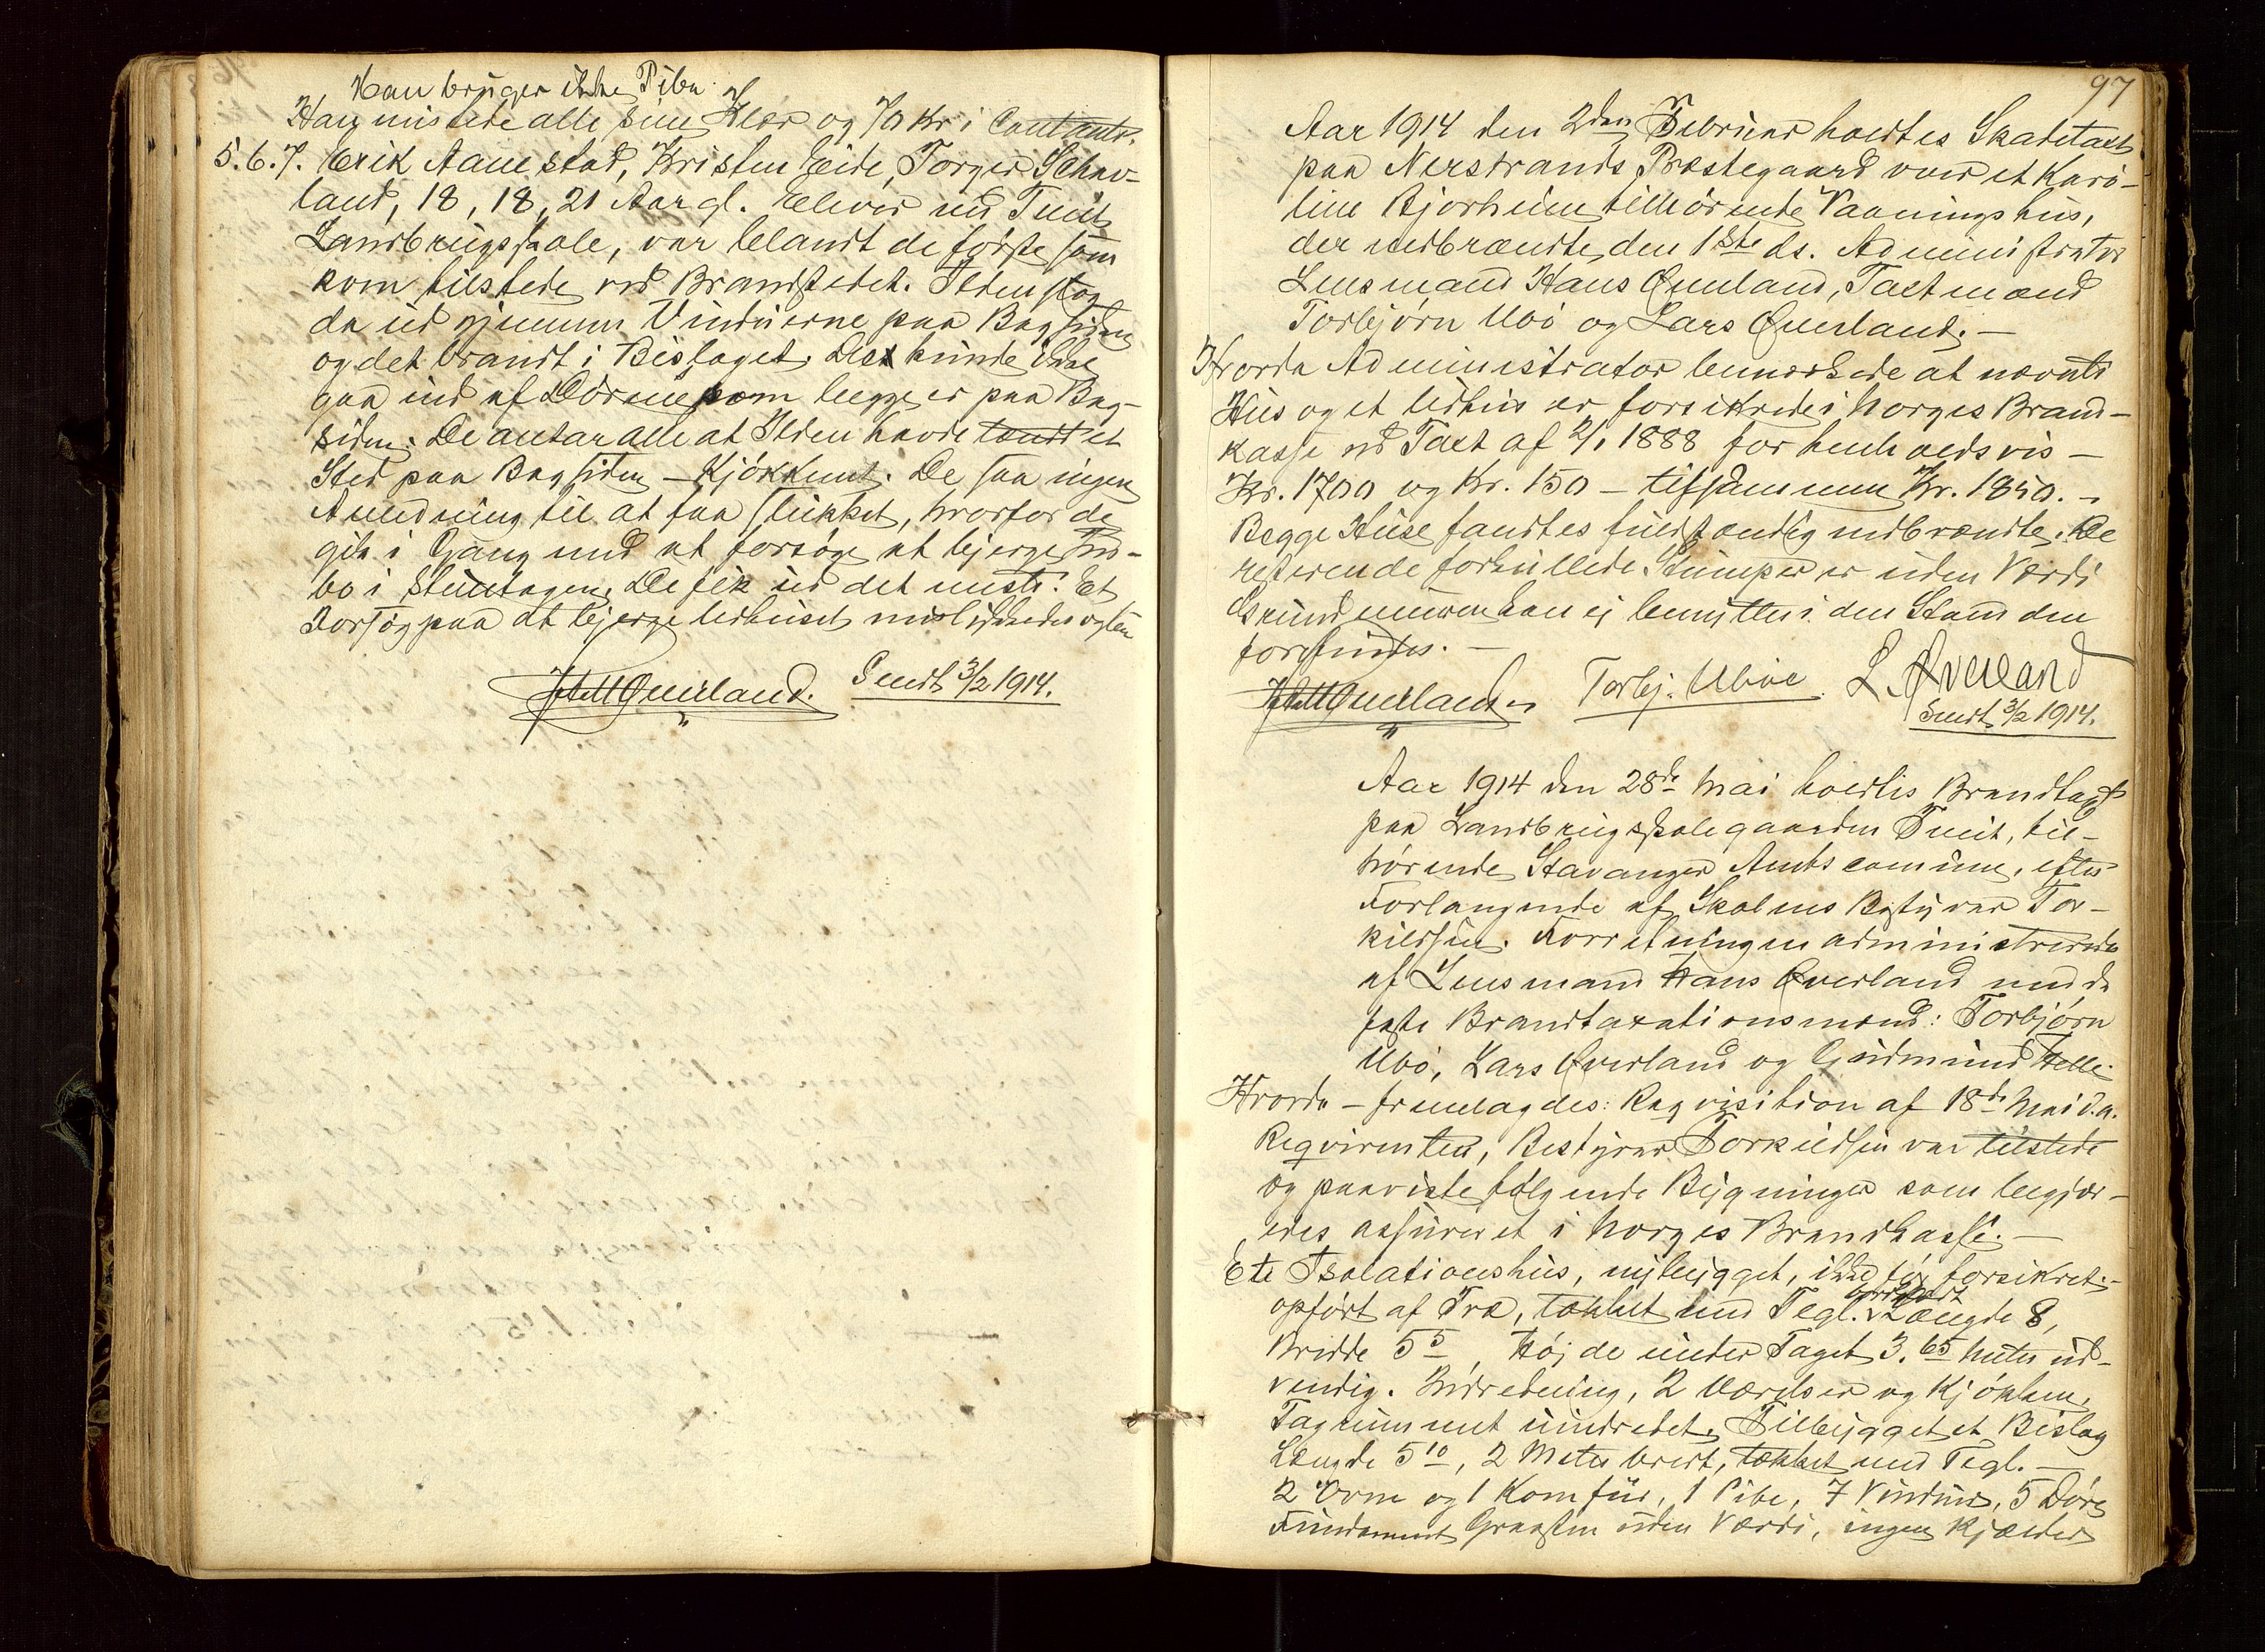 Han bruger ikke Pibe.
Han mistede alle sine Klær og 70 Kr i Contanter.
5.6.7. Erik Aanestad, Kristen Eide, Torger Schav-
land, 18, 18, 21 Aar gl. Elever ved Tveit
Landbrugsskole, var blandt de første som
kom tilstede ved Brandstedet. Ilden stog
da ud gjennem Vinduerne paa Bagsiden
og det brandt i Bislaget. De kunde ikke
gaa ind af Dörene som begge er paa Bag-
siden. De antar alle at Ilden havde tændt et
Sted paa Bagsiden – Kjökkenet. De saa ingen
Anledning til at faa slukket, hvorfor de
gik i Gang med at forsøge at bjerge Ind-
bo i Stuetagen. De fik ud det meste. Et
Forsøg paa at bjerge Ildhuset mislykkedes
Overland. Sendt 3/2 1914.
97
Aar 1914 den 2den Februar holdtes Skadetaxt
paa Nerstrands Præstegaard over et Karo-
line Bjorheim tilhörende Vaaningshus,
der nedbrændte den 1ste ds. Administrator
Lensmand Hans Øverland, Taxtmænd
Torbjørn Ubø og Lars Øverland. –
Hvorda Administrator bemærkede at nævnte
Hus og et Ildhus er forsikrede i Norges Brand-
kasse ved Taxt af 2/1 1888 for henholdsvis –
Kr. 1700 og Kr. 150 – tilsammen Kr. 1850. –
Begge Huse fandtes fuldstændig nedbrændte. De
resterende forkullede Stumper er uden Værdi
Grundmuren kan ej benyttes i den Stand den
forefindes. –
Overland Torbj. Uböe L. Øverland
Sendt 3/2 1914.
Aar 1914 den 28de Mai holdtes Brandtaxt
paa Landbrugsskolegaarden Tveit, til-
hørende Stavanger Amtscomune, efter
Forlangende af Skolens Bestyrer Tor-
kildsen. Forretningen administreredes
af Lensmand Hans Øverland med de
faste Brandtaxationsmænd: Torbjørn
Ubø, Lars Øverland og Gudmund Helle.
Hvorda – fremlagdes: Reqvisition af 18de Mai d.a.
Reqvirenten, Bestyrer Torkildsen var tilstede
og paaviste følgende Bygninger som begjær-
edes assureret i Norges Brandkasse. –
Et Isolationshus, nybygget, ikke før forsikret. –
bordklædt
opført af Træ, tækket med Tegl. Længde 8,
Bredde 5 5, Höjde under Taget 3.65 Meter ud-
vendig. Indredning, 2 Værelser og Kjøkken.
Tagrummet uindredet. Tilbygget et Bislag
Længde 5 10, 2 Meter bredt, tækket med Tegl. –
2 Ovne og 1 Komfur, 1 Pibe, 7 Vinduer, 5 Döre
Fundament Graasten uden Værdi, ingen Kjælder